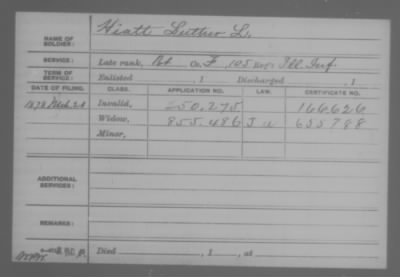 NAME OF SOLDIER: Hiatt Luther L.
SERVICE: Late rank, Co. F, 105 Reg't Ill. Inf.
TERM OF SERVICE: Enlisted , 1 Discharged , 1
DATE OF FILING. CLASS. APPLICATION NO. LAW. CERTIFICATE NO.
1878 Invalid, 250.275 166.626
Widow, 855.486 635788
Minor,
ADDITIONAL SERVICES:
REMARKS:
Died , 1 , at